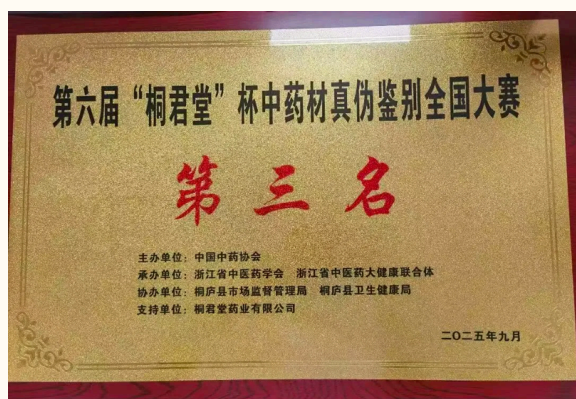 第六届“桐君堂”杯中药材真伪鉴别全国大赛
第三名
主办单位：中国中药协会
承办单位：浙江省中医药学会 浙江省中医药大健康联合体
协办单位：桐庐县市场监督管理局 桐庐县卫生健康局
支持单位：桐君堂药业有限公司
二〇二五年九月